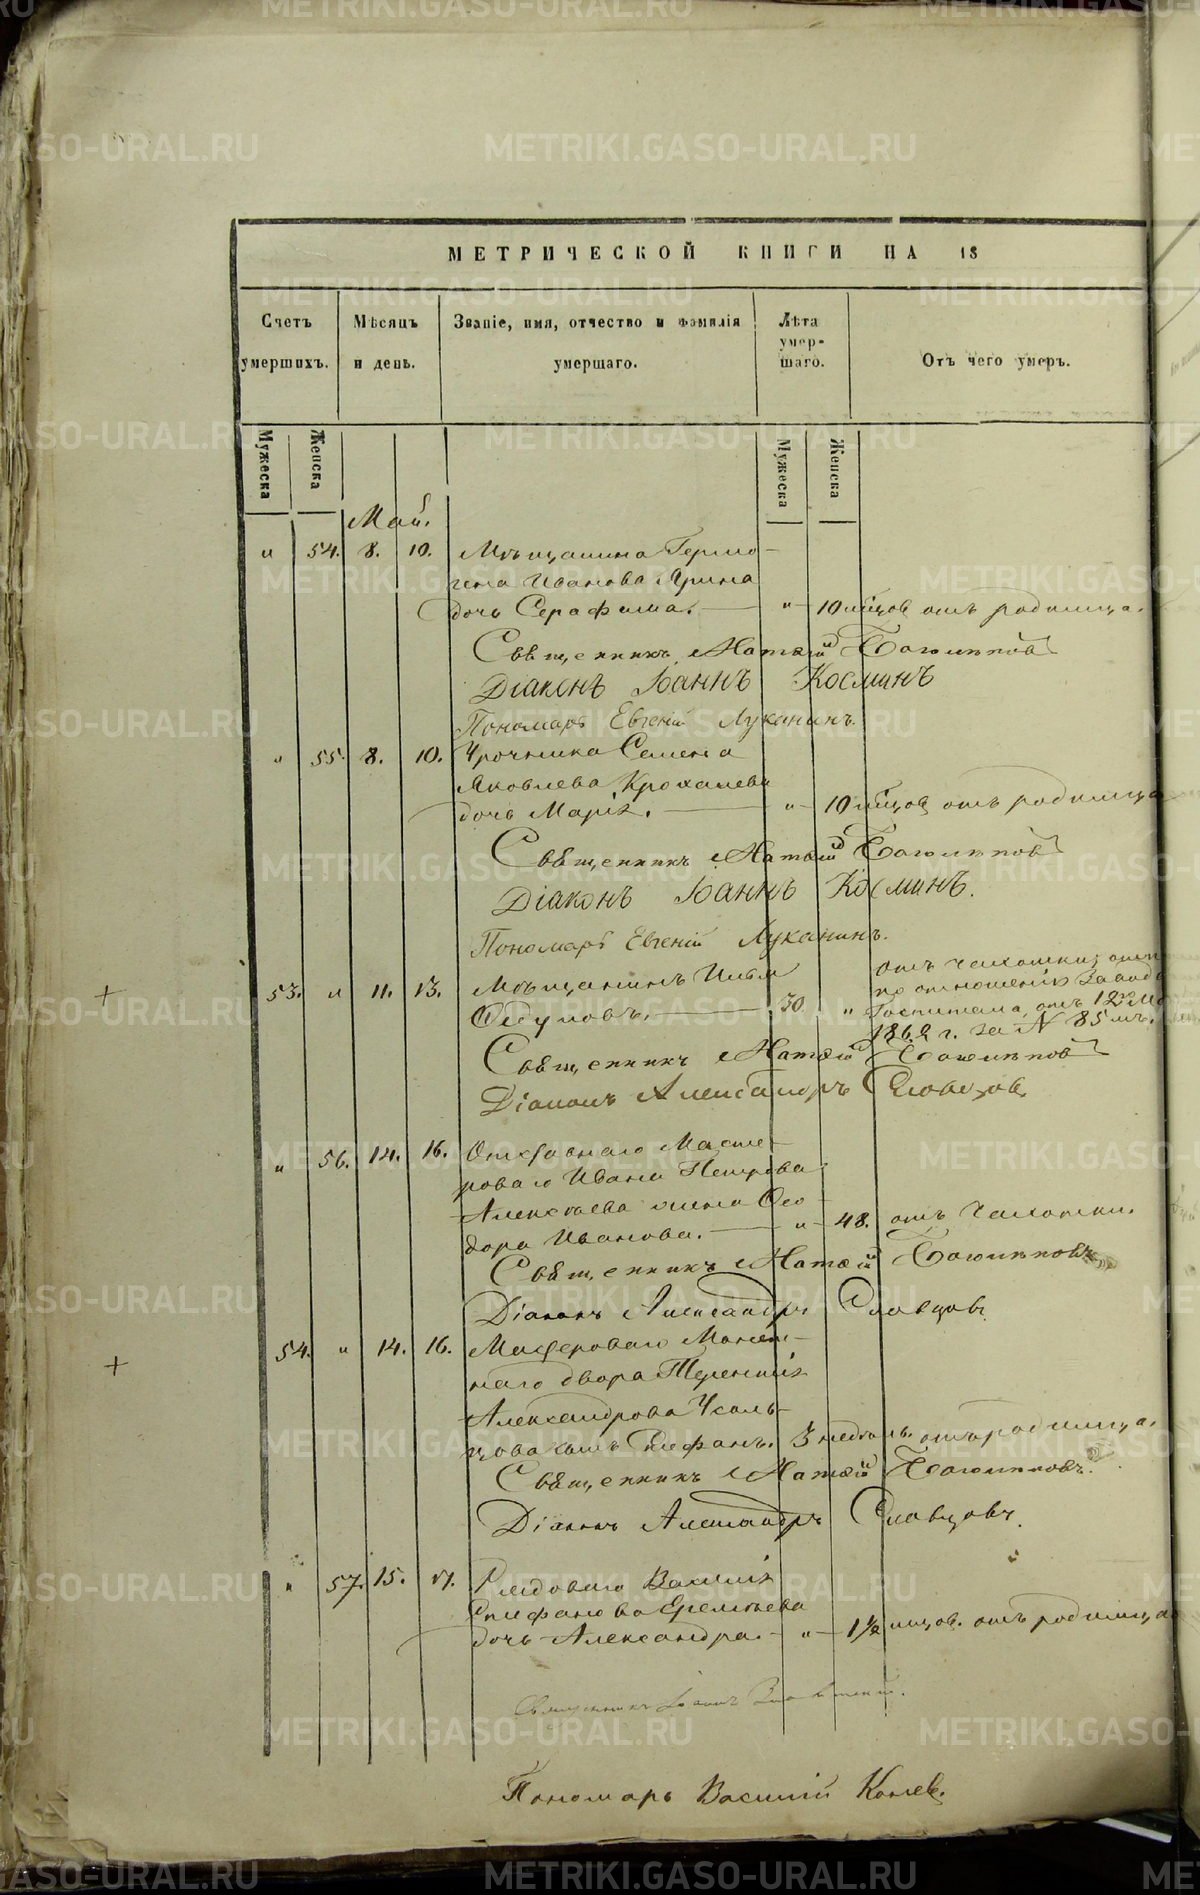 МЕТРИЧЕСКОЙ КНИГИ НА 18
Счетъ умершихъ.
Мѣсяцъ и день.
Званіе, имя, отчество и фамилія умершаго.
Лѣта умершаго.
Отъ чего умеръ.
Мужеска
Женска
Мужеска
Женска
Май.
" 54. 8. 10. Мѣщанина Гермо-
гена Иванова Ярина
дочь Серафима. " 10 мѣсцов отъ родимца.
Священникъ Матѳій Боголѣповъ
Діаконъ Іоаннъ Косминъ
Пономарь Евгеній Луканинъ.
" 55. 8. 10. Урочника Семена
Яковлева Крохалева
дочь Марія. " 10 мѣсцов отъ родимца
Священникъ Матѳій Боголѣповъ
Діаконъ Іоаннъ Косминъ.
Пономарь Евгеній Луканинъ.
53. " 11. 13. Мѣщанинъ Илья
Федуловъ. 30. " отъ чахотки,
по отношенію Завод
Госпиталя, отъ 12го М
1862 г. за № 85 мъ.
Священникъ Матѳій Боголѣповъ
Діаконъ Александръ Словцовъ
" 56. 14. 16. Отставнаго Масте-
роваго Ивана Петрова
Алексѣева жена Ѳео-
дора Иванова. " 48. отъ чахотки.
Священникъ Матѳій Боголѣповъ
Діаконъ Александръ Словцовъ
54. " 14. 16. Мастероваго Монет-
наго двора Терентія
Александрова Усоль-
цова сынъ Епифанъ. 3 недѣль. отъ родимца.
Священникъ Матѳій Боголѣповъ.
Діаконъ Александръ Словцовъ.
" 57. 15. 17. Рядоваго Василія
Епифанова Еремѣева
дочь Александра. " 1½ мѣсцов. отъ родимца
Священникъ Іоаннъ
Пономарь Василій Конев.
METRIKI.GASO-URAL.RU